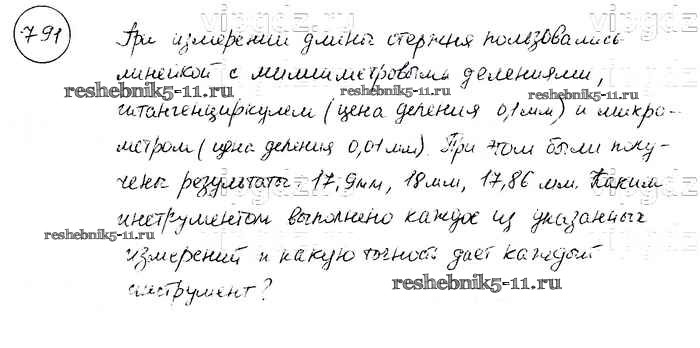 791
При измерении длины стержня пользовались
линейкой с миллиметровыми делениями,
штангенциркулем (цена деления 0,1мм) и микро-
метром (цена деления 0,01мм). При этом были полу-
чены результаты: 17,9мм, 18мм, 17,86 мм. Каким
инструментом выполнено каждое из указанных
измерений и какую точность дает каждый
инструмент?
vipgdz
vipgdz
reshebnik5-11.ru
reshebnik5-11.ru
reshebnik5-11.ru
reshebnik5-11.ru